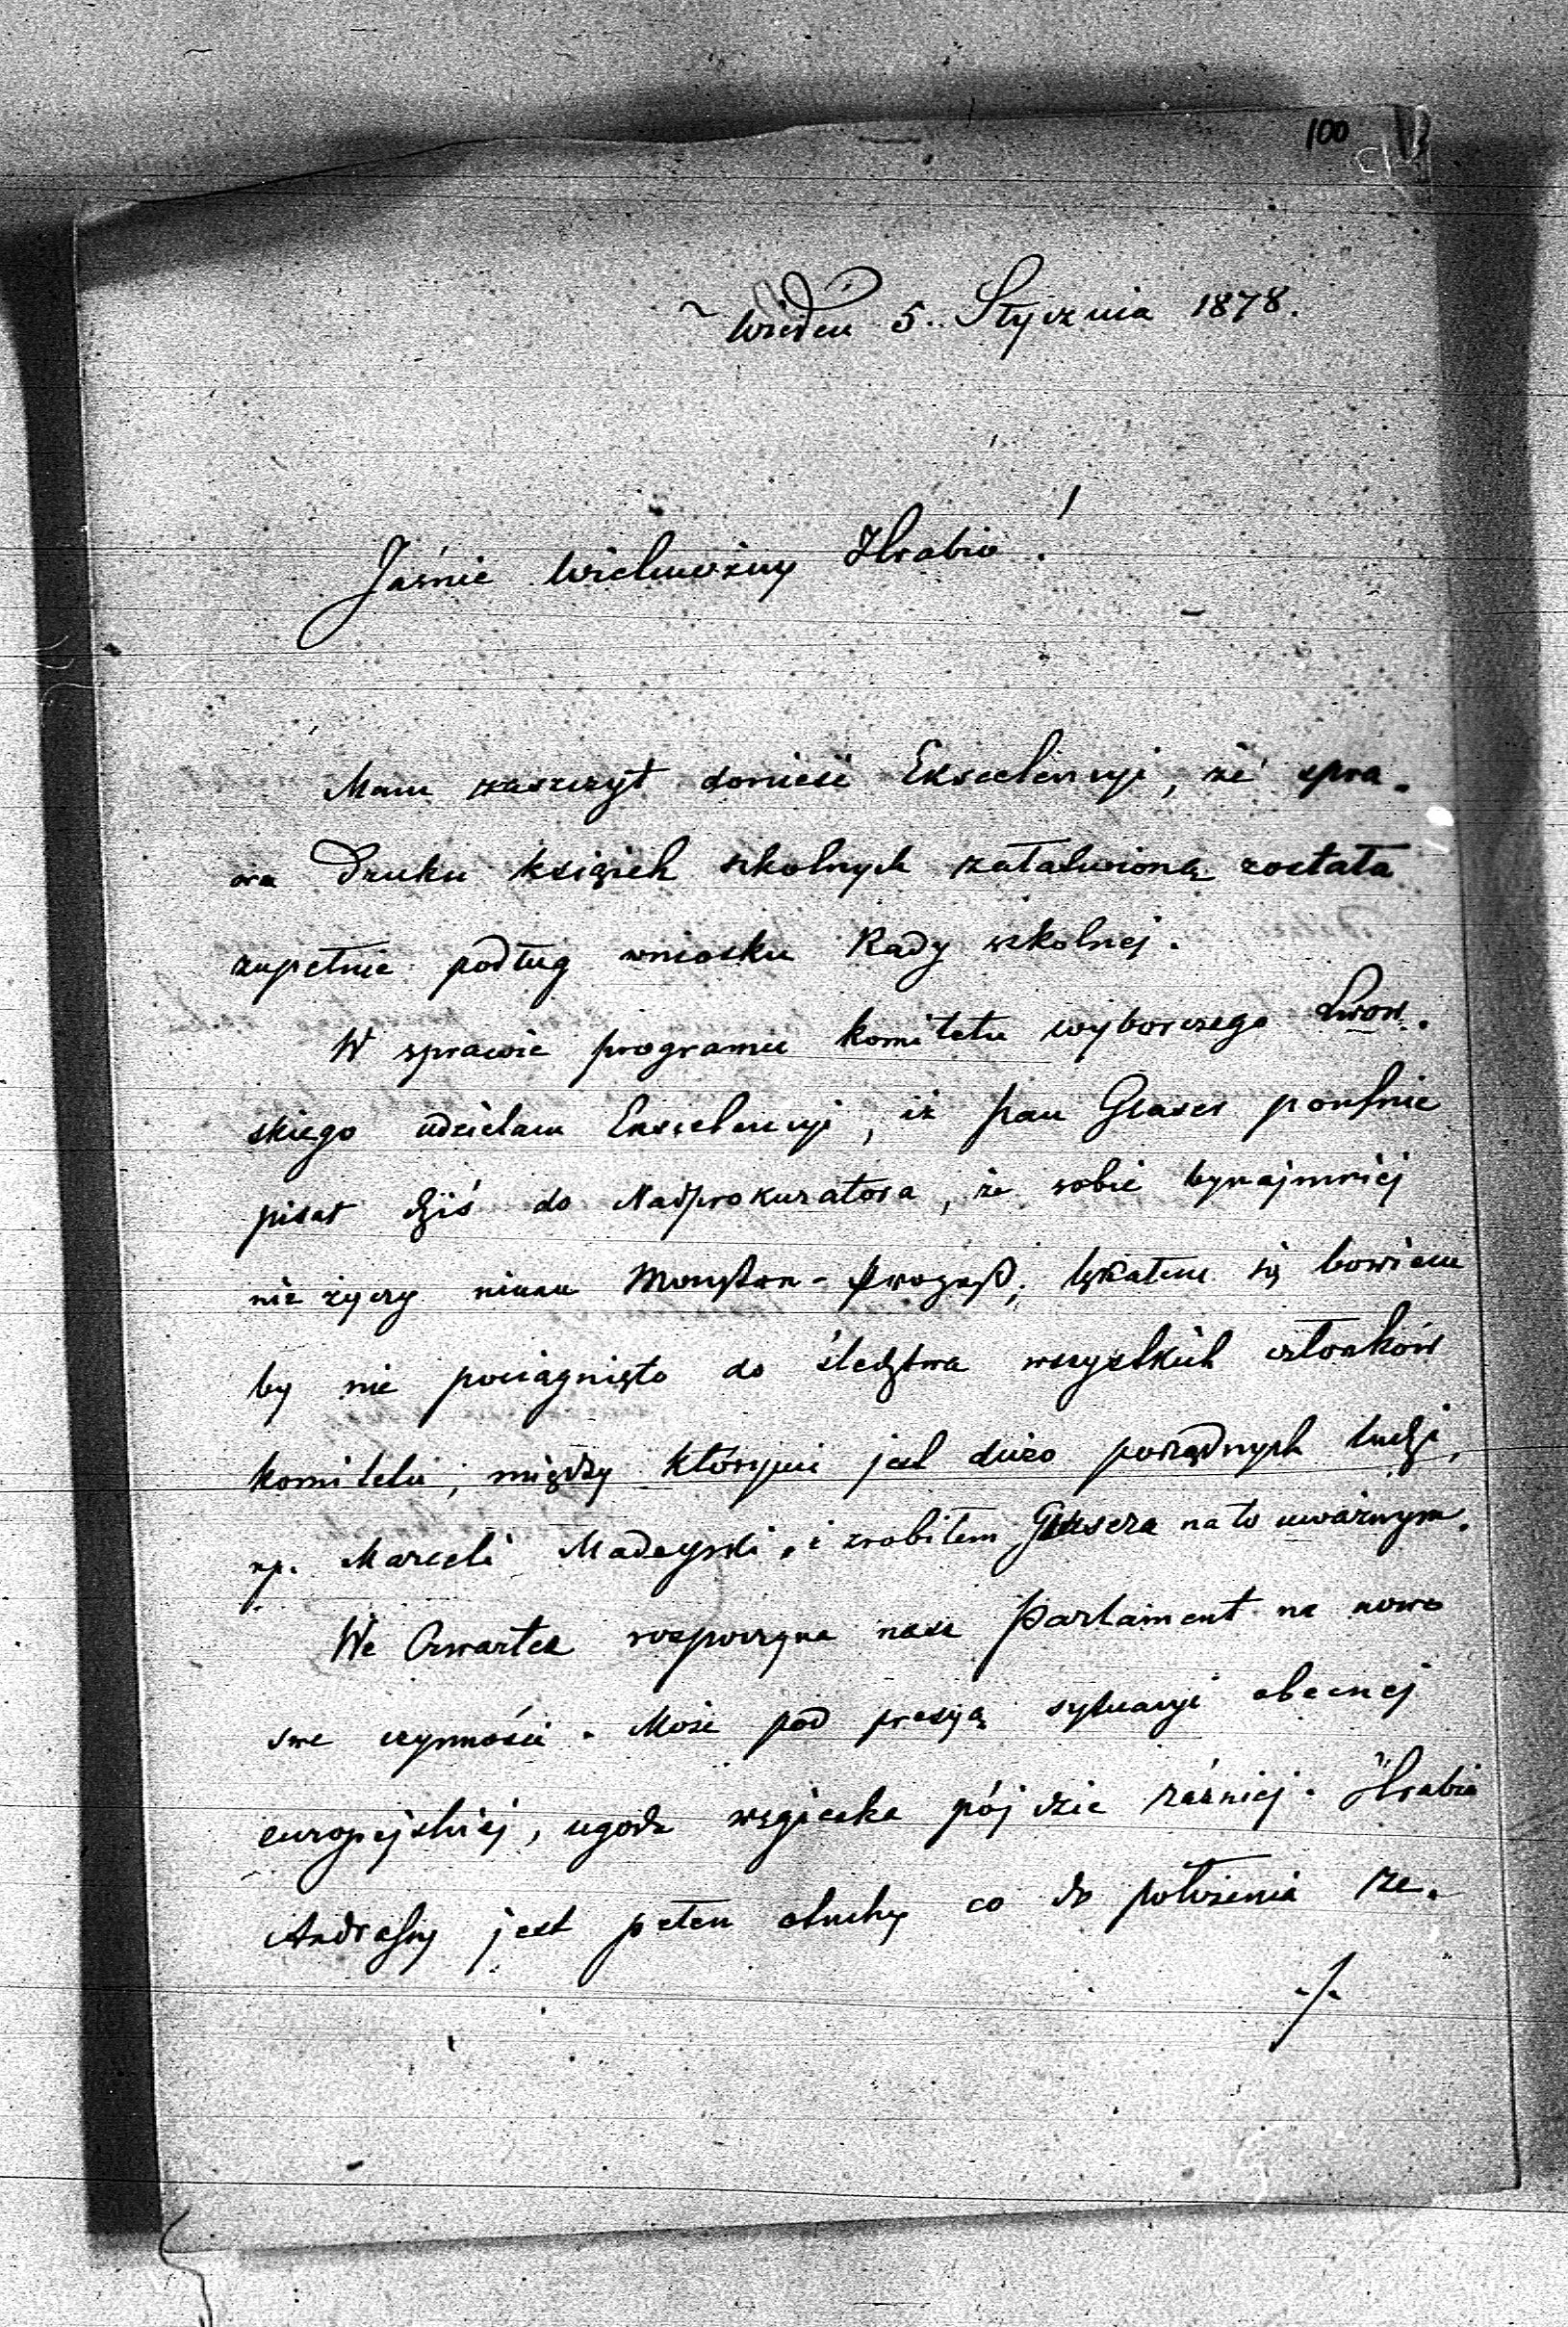 100
Wiedeń 5. Stycznia 1878.
Jaśnie Wielmożny Hrabio!
Mam zaszczyt donieść Ekscelencyi, że spra-
wa Druku książek szkolnych załatwioną została
zupełnie podług wniosku Rady szkolnej.
W sprawie programu komitetu wyborczego Lwow-
skiego udzielam Ekscelencyi, iż pan Glaser poufnie
pisał dziś do Nadprokuratora, że sobie bynajmniej
nie życzy niema Monstre-Prozeß; lękałem się bowiem
by nie pociągnięto do śledztwa wszystkich członków
komitetu, między którymi jest dużo porządnych ludzi,
np. Marceli Madeyski, i zrobiłem Glasera na to uważnym.
We Czwartek rozpoczyna nasz Parlament na nowo
swe czynności. Może pod presyą sytuacyi obecnej
europejskiej, ugoda węgierska pójdzie raźniej. Hrabia
Andrassy jest pełen otuchy co do położenia ze-
./.